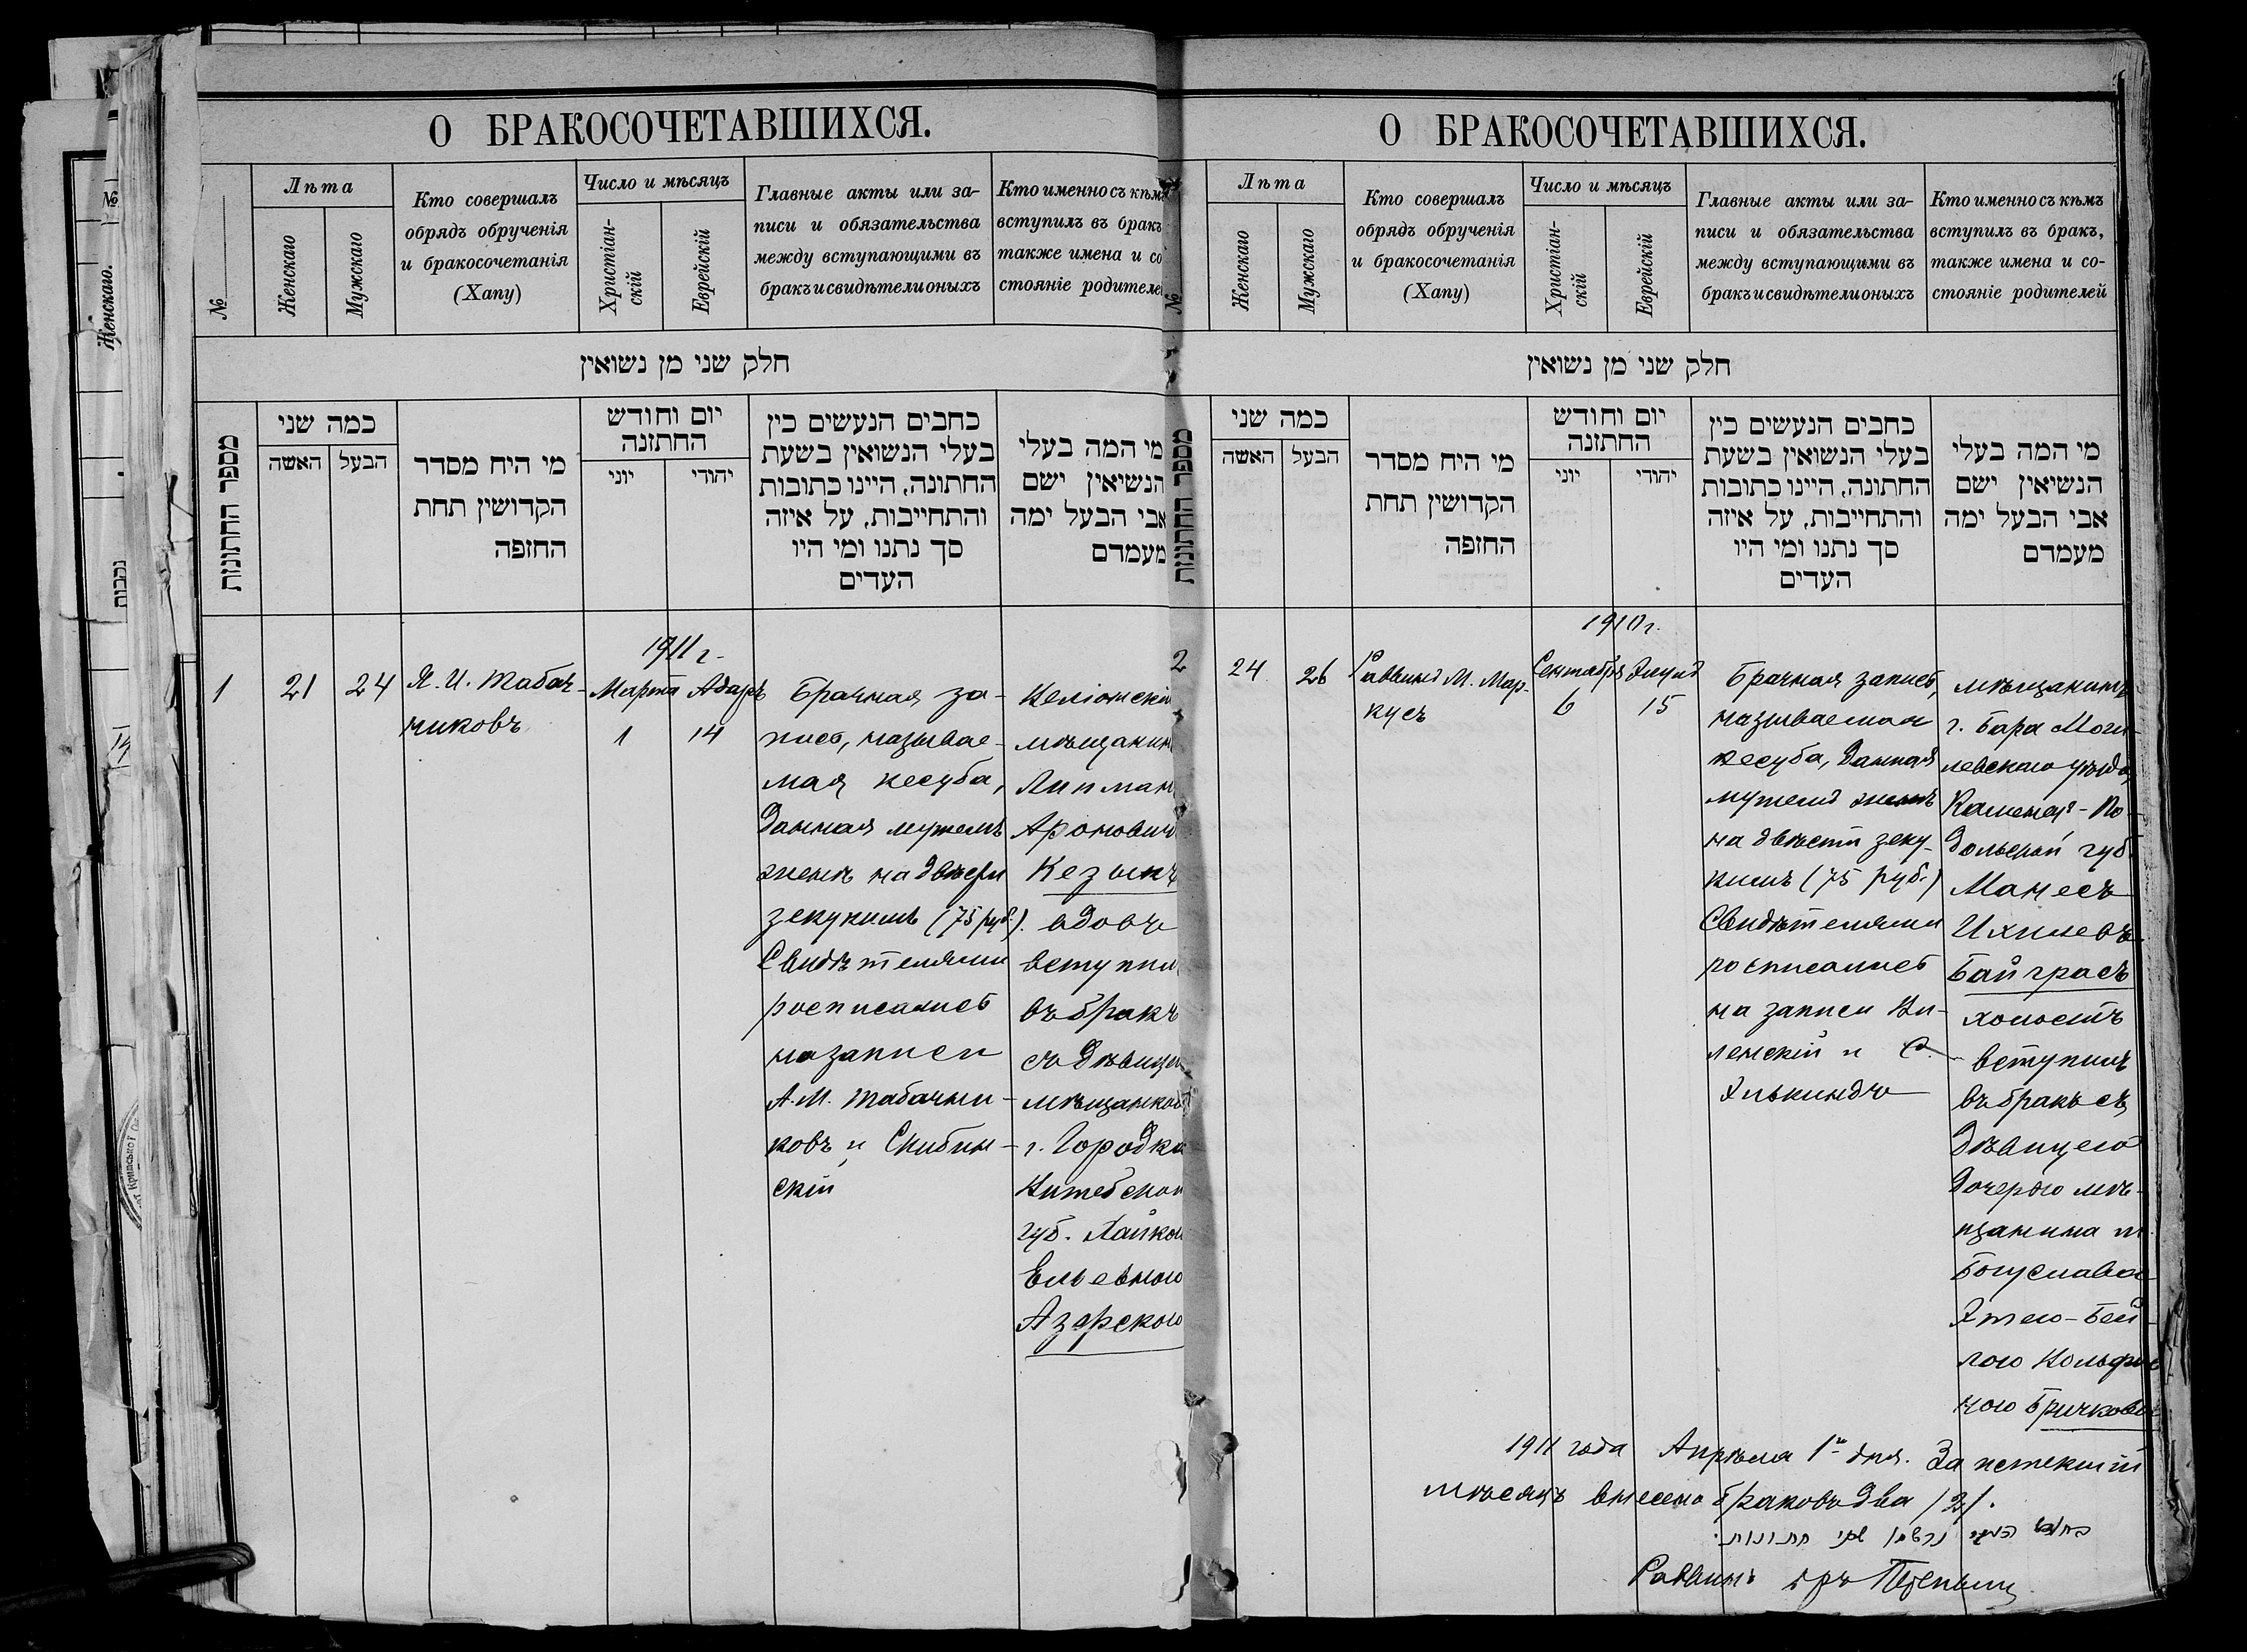 О БРАКОСОЧЕТАВШИХСЯ.
№
Лѣта
Женскаго
Мужскаго
Кто совершалъ
обрядъ обрученія
и бракосочетанія
(Хапу)
Число и мѣсяцъ
Христіан-
скій
Еврейскій
Главные акты или за-
писи и обязательства
между вступающими въ
бракъ и свидѣтели оныхъ
Кто именно съ кѣмъ
вступилъ въ бракъ
также имена и со
стояніе родителей
חלק שני מן נשואין
מספר החתונות
כמה שני
האשה
הבעל
מי היח מסדר
הקדושין תחת
החזפה
יום וחודש
החתזנה
יוני
יהודי
כחבים הנעשים כין
בעלי הנשואין בשעת
החתונה, היינו כתובות
והתחייבות, על איזה
סך נתנו ומי היו
העדים
מי המה בעלי
הנשיאין ישם
אבי הבעל ימה
מעמדם
1
21
24
Я. И. Табач-
никовъ
1911 г.
Марта
1
Адаръ
14
Брачная за-
пись, называе-
мая кесуба,
данная мужемъ
женѣ на двѣсти
зекукимъ (75 руб.).
Свидѣтелями
росписались
на записи
А. М. Табачни-
ковъ и Скибин-
скій
мѣщанин
Липман
Аронович
Кезынъ
вдовъ
вступил
въ бракъ
съ дѣвицею
мѣщанкой
г. Городка
Витебской
губ. Хайкою
Ельевною
Азарскою
О БРАКОСОЧЕТАВШИХСЯ.
№
Лѣта
Женскаго
Мужскаго
Кто совершалъ
обрядъ обрученія
и бракосочетанія
(Хапу)
Число и мѣсяцъ
Христіан-
скій
Еврейскій
Главные акты или за-
писи и обязательства
между вступающими въ
бракъ и свидѣтели оныхъ
Кто именно съ кѣмъ
вступилъ въ бракъ,
также имена и со-
стояніе родителей
חלק שני מן נשואין
מספר החתונות
כמה שני
האשה
הבעל
מי היח מסדר
הקדושין תחת
החזפה
יום וחודש
החתזנה
יוני
יהודי
כחבים הנעשים כין
בעלי הנשואין בשעת
החתונה, היינו כתובות
והתחייבות, על איזה
סך נתנו ומי היו
העדים
מי המה בעלי
הנשיאין ישם
אבי הבעל ימה
מעמדם
2
24
26
Раввинъ М. Мар-
кусъ
1910 г.
Сентября
6
Элулъ
15
Брачная запись,
называемая
кесуба, данная
мужемъ женѣ
на двѣсти зеку-
кимъ (75 руб.)
Свидѣтелями
росписались
на записи Ви-
ленскій и С.
Элькиндъ
мѣщанинъ
г. Бара Моги-
левскаго уѣзда,
Каменец-По-
дольской губ.
Манесъ
Ихилевъ
Байграсъ
холостъ
вступилъ
въ бракъ съ
дѣвицею
дочерью мѣ-
щанина м.
Богуслава
Этею-Бей-
лою Вольфов
ною Бричковой
1911 года Апрѣля 1го дня. За истекшій
мѣсяцъ внесено браковъ два /2/.
Раввинъ